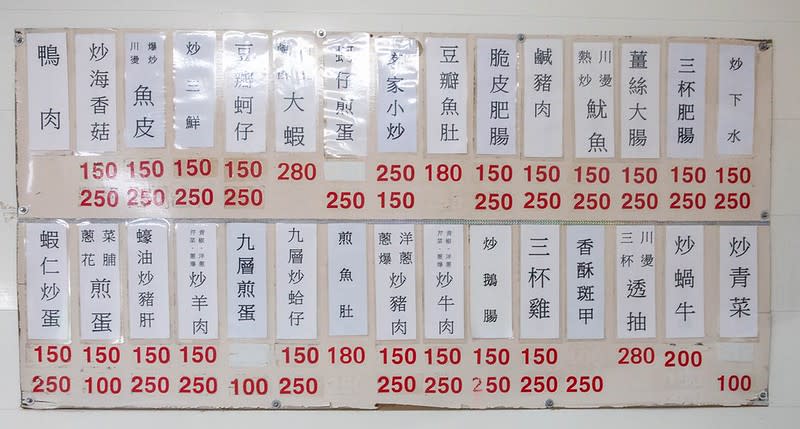 炒下水
150
250
三杯肥腸
150
250
薑絲大腸
150
250
川燙
熱炒
魷魚
150
250
鹹豬肉
150
250
脆皮肥腸
150
250
豆瓣魚肚
180
客家小炒
250
150
蚵仔煎蛋
250
大蝦
280
豆瓣蚵仔
150
250
炒三鮮
150
250
爆炒
川燙
魚皮
150
250
炒海香菇
150
250
鴨肉
炒青菜
100
炒蝸牛
200
川燙
三杯
透抽
280
香酥斑甲
250
三杯雞
150
250
炒鵝腸
150
250
青椒·洋蔥
芹菜·蔥爆
炒牛肉
150
250
洋蔥
蔥爆
炒豬肉
150
250
煎魚肚
180
九層炒蛤仔
150
250
九層煎蛋
100
青椒·洋蔥
芹菜·蔥爆
炒羊肉
150
250
蠔油炒豬肝
150
250
菜脯
蔥花
煎蛋
150
100
蝦仁炒蛋
150
250